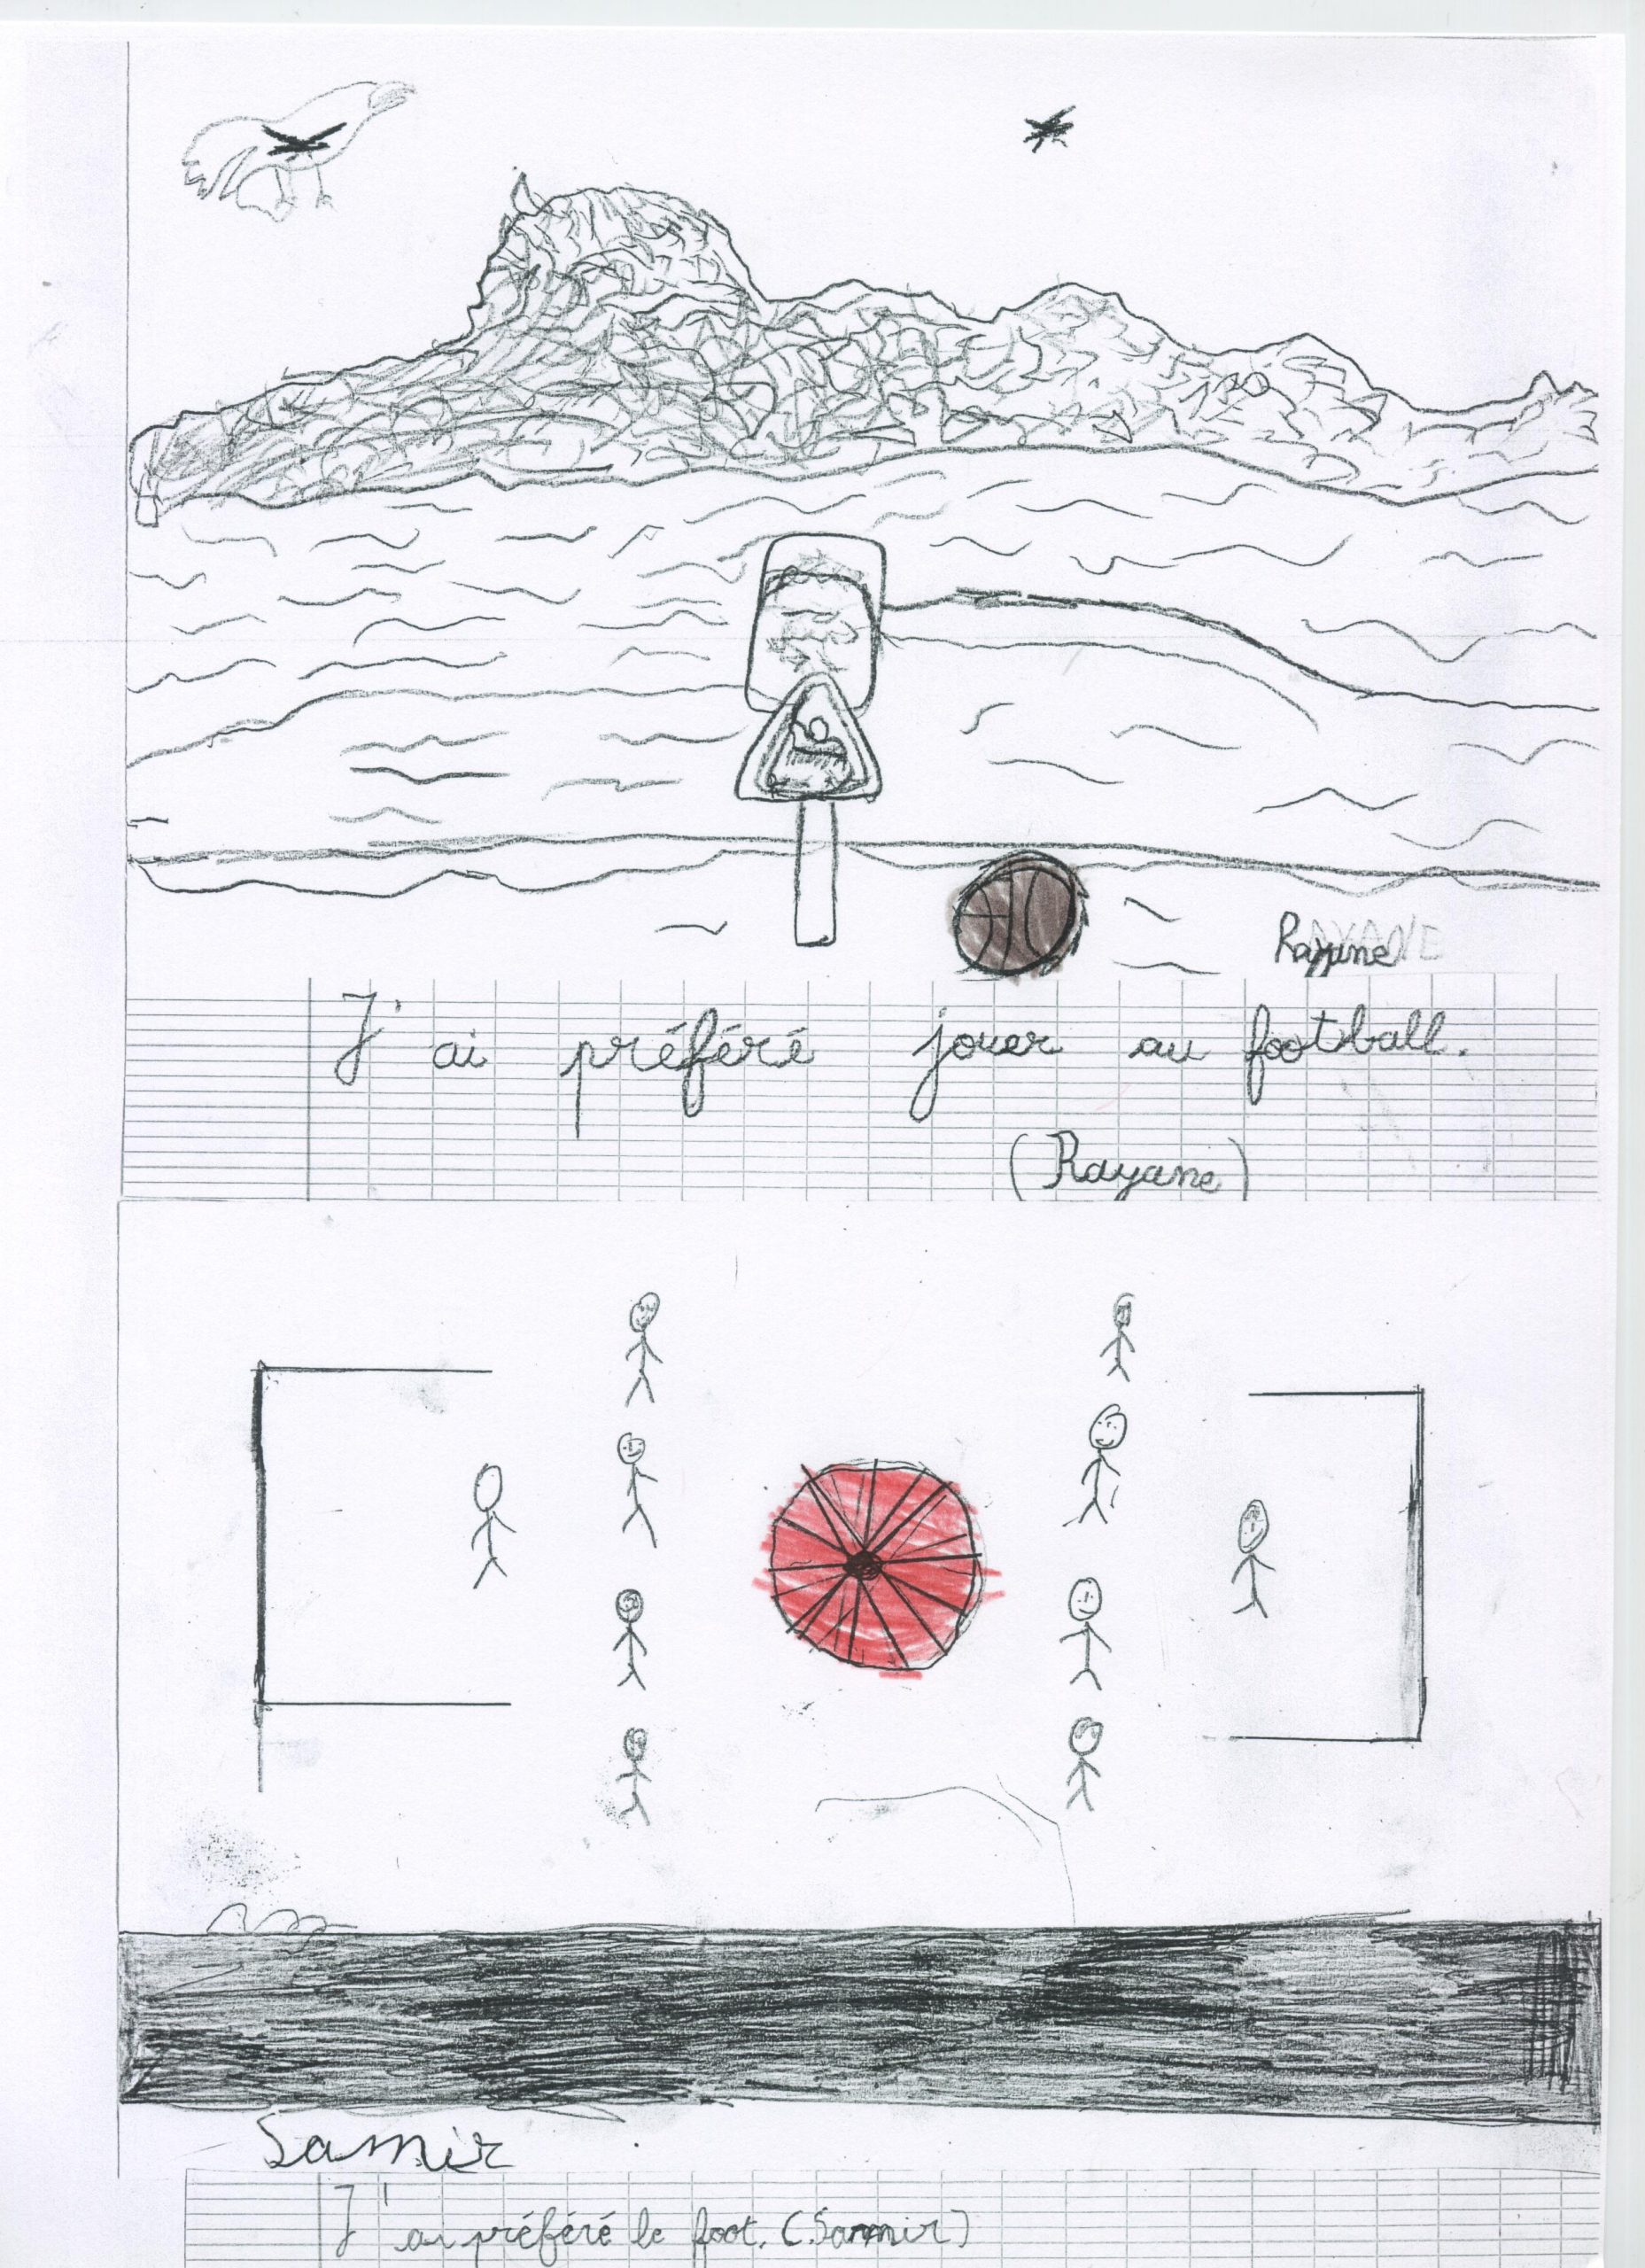 Rayane
J'ai préféré jouer au football.
(Rayane)
Samir
J'ai préféré le foot. (Samir)